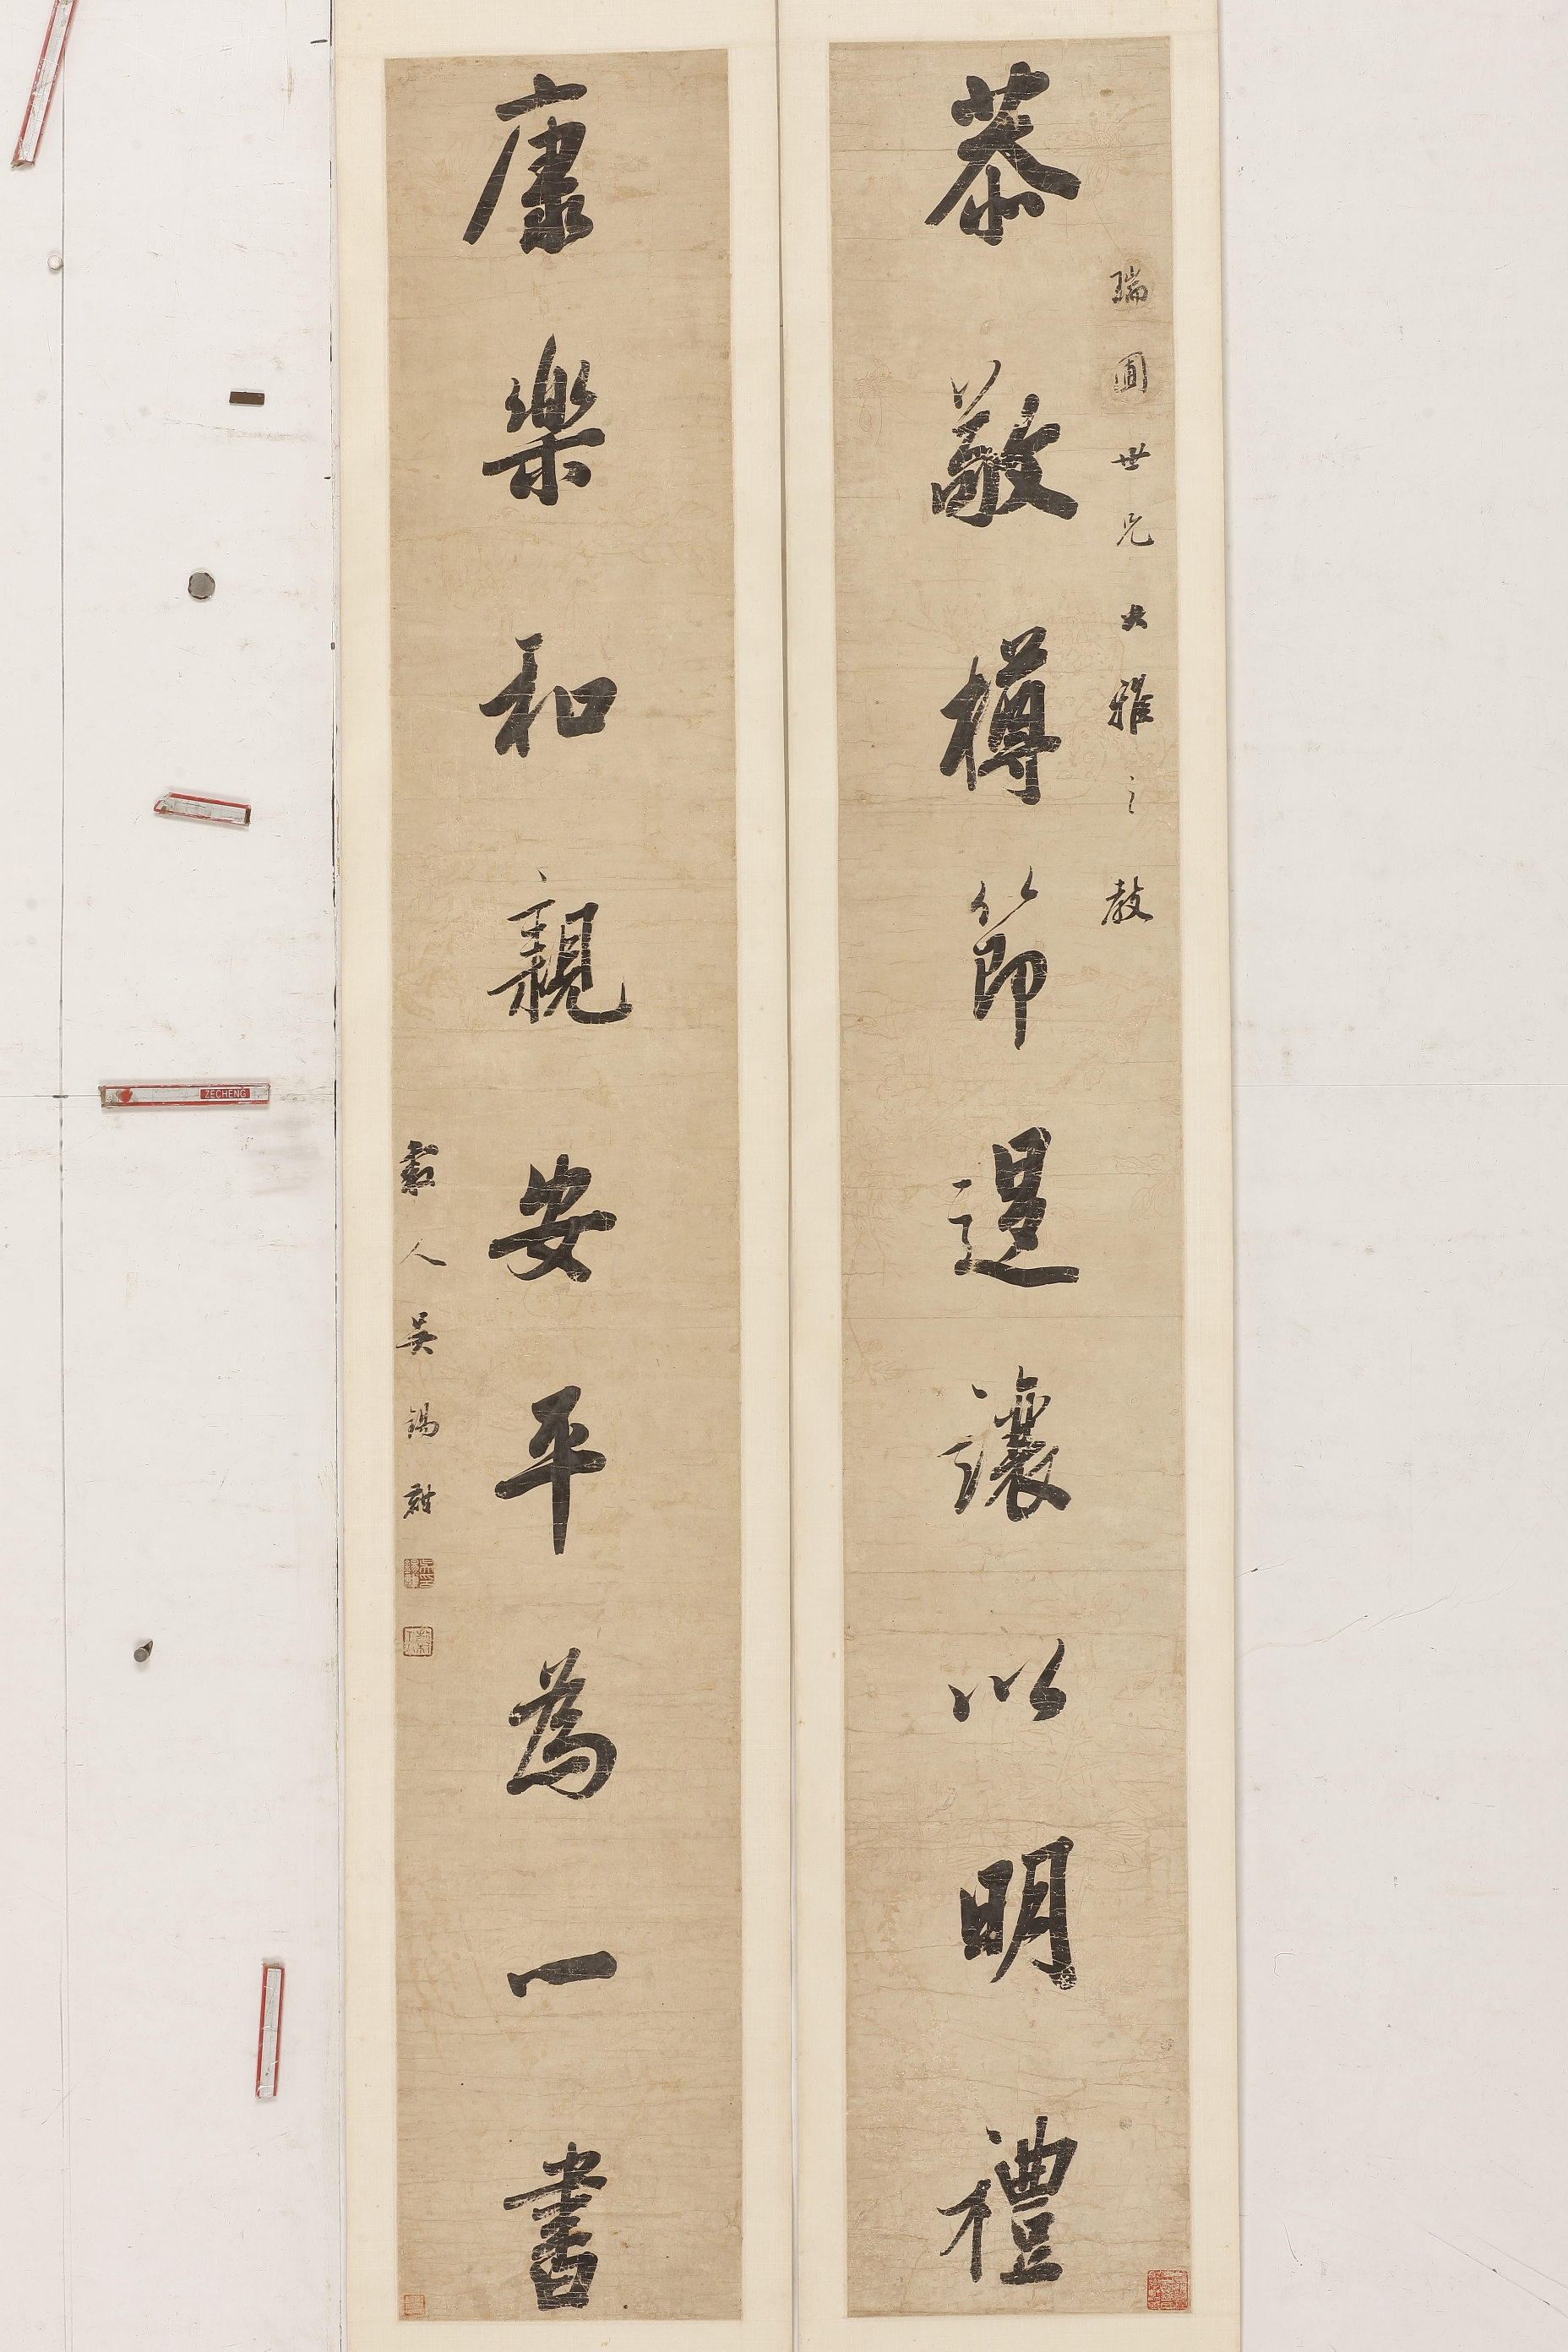 瑞圃世兄大雅之教
恭敬樽節退讓以明禮
康樂和親安平為一書
穀人吳錫麒
ZECHENG